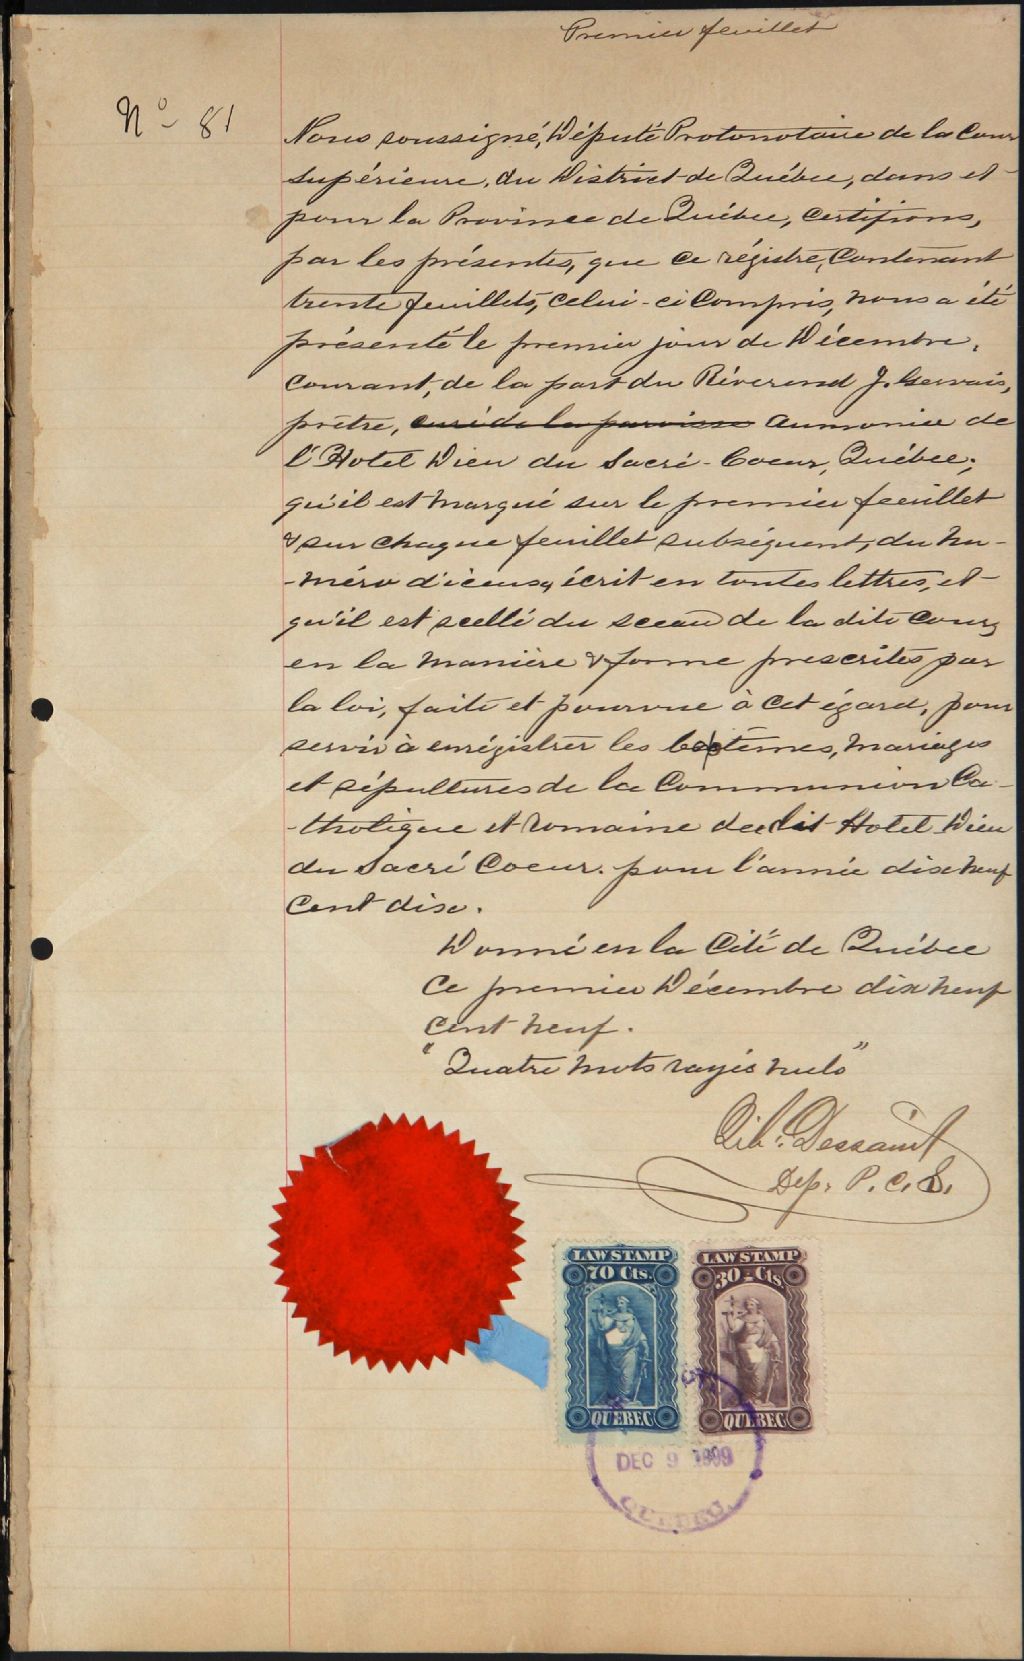 Premier feuillet
No 81
Nous soussigné, Député Protonotaire de la Cour
Supérieure, du District de Québec, dans et
pour la Province de Québec, Certifions,
par les présentes, que ce régistre, Contenant
trente feuillets, celui-ci Compris, nous a été
présenté le premier jour de Décembre,
Courant, de la part du Réverend J. Gervais,
prêtre, curé de la paroisse Aumonier de
l'Hotel Dieu du Sacré-Coeur, Québec;
qu'il est marqué sur le premier feuillet
& sur chaque feuillet subséquent, du nu-
-méro d'iceux, écrit en toutes lettres, et
qu'il est scellé du sceau de la dite Cour,
en la manière & forme prescrites par
la loi, faite et pourvue à cet égard, pour
servir à enrégistrer les baptêmes, mariages
et sépultures de la Communion Ca-
-tholique et romaine du dit Hotel Dieu
du Sacré Coeur. pour l'année dix neuf
Cent dix.
Donné en la Cité de Québec
Ce premier Décembre dix neuf
Cent neuf.
"Quatre mots rayés nuls"
Dessaint
Dép. P. C. S.
LAW STAMP LAW STAMP
70 Cts. 30-Cts.
QUEBEC QUEBEC
DEC 9 1909
QUEBEC.